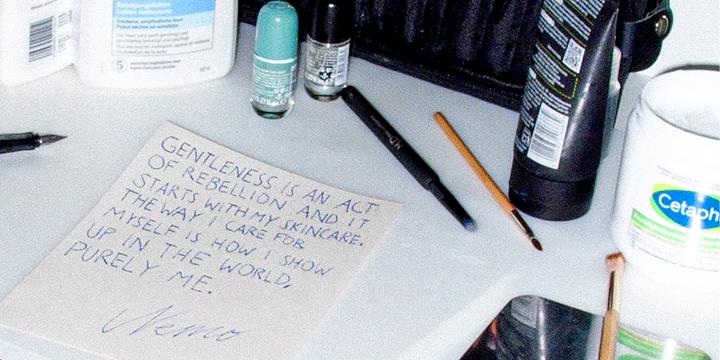 Reinigungslotion
5
GENTLENESS IS AN ACT
OF REBELLION AND IT
STARTS WITH MY SKINCARE.
THE WAY I CARE FOR
MYSELF IS HOW I SHOW
UP IN THE WORLD,
PURELY ME.
Nemo
Cetaph